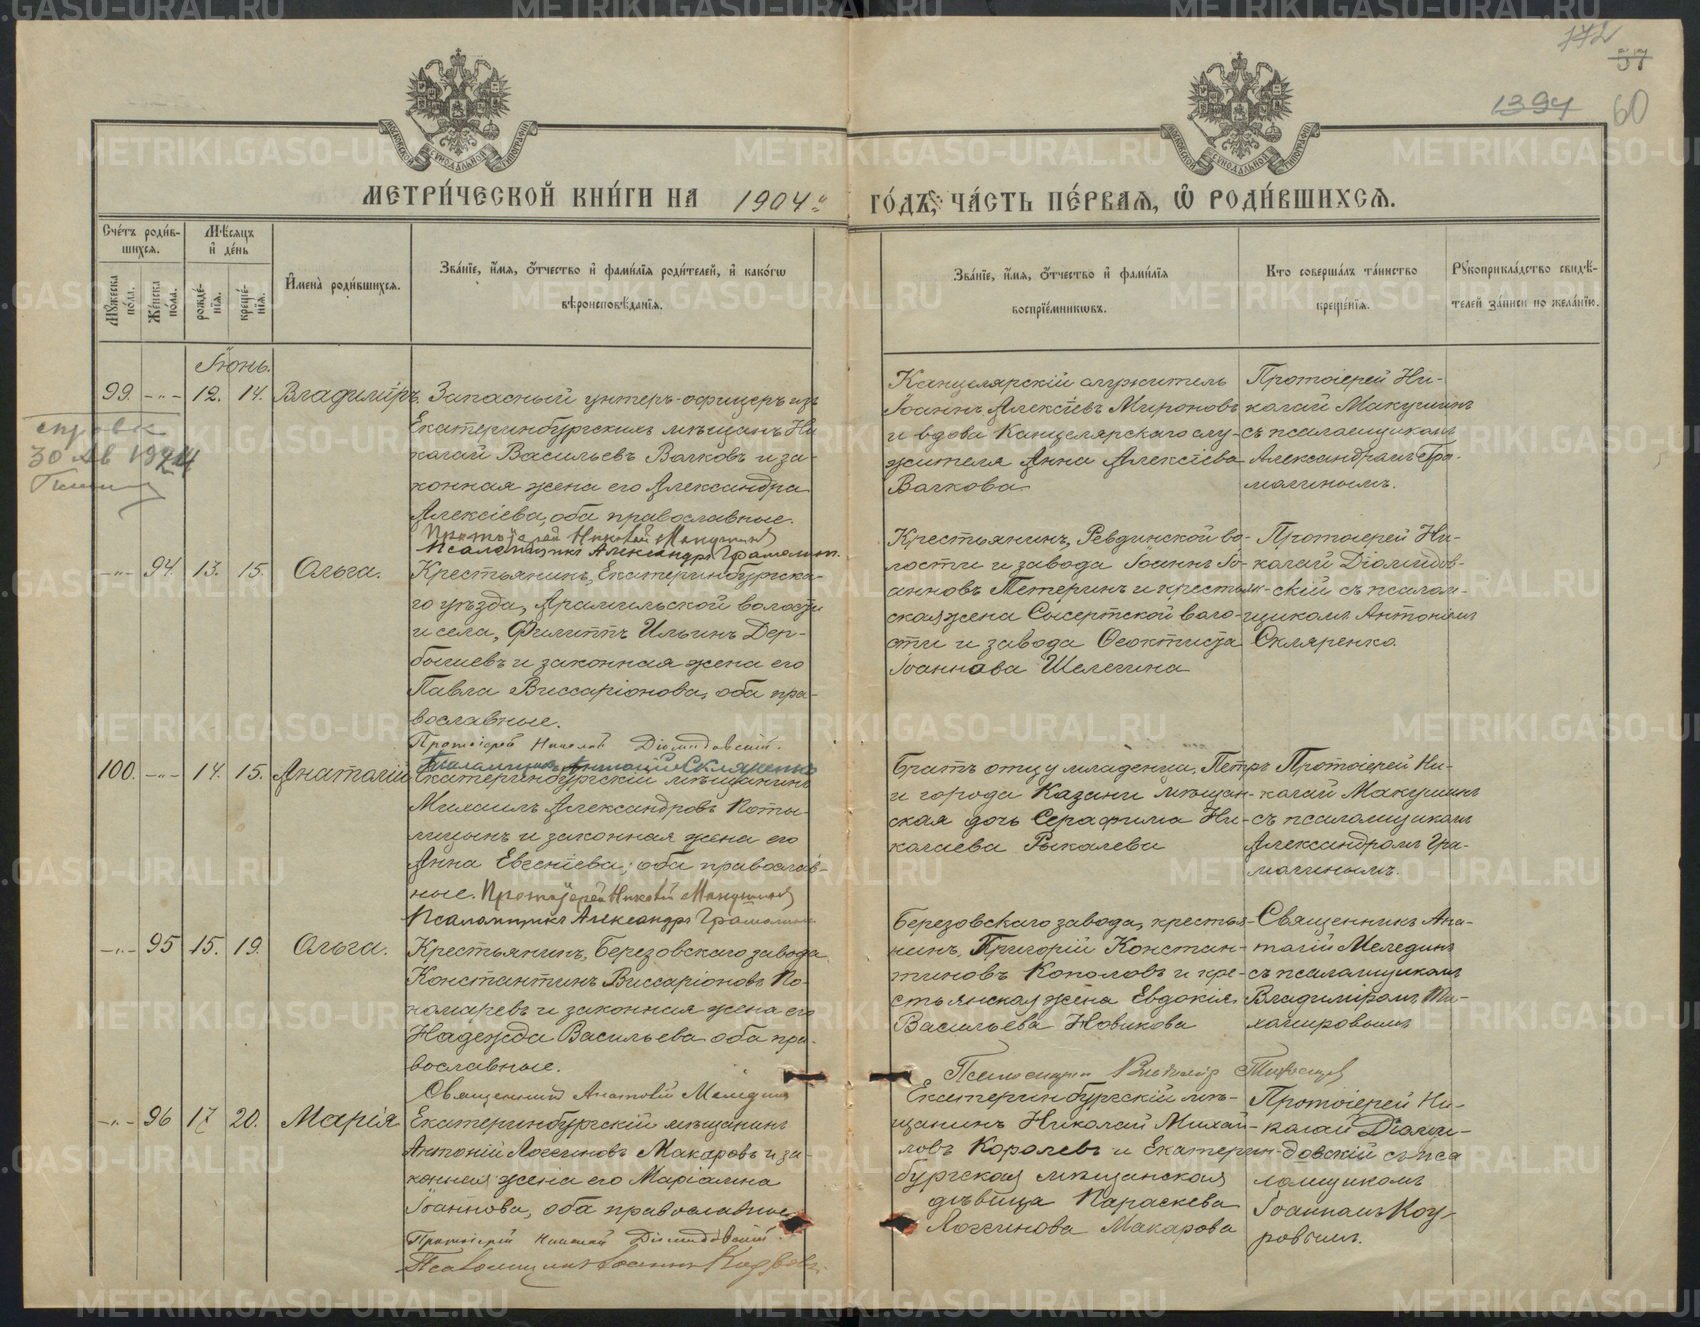 172
57
1394
60
МОСКОВСКОЙ СѴНОДАЛЬНОЙ ТИПОГРАФІИ
МОСКОВСКОЙ СѴНОДАЛЬНОЙ ТИПОГРАФІИ
МЕТРИ́ЧЕСКОЙ КНИ́ГИ НА 1904 го́дъ, ЧА́СТЬ ПЕ́РВАѦ, Ѡ РОДИ́ВШИХСѦ.
Сче́тъ роди́в-
шихсѧ.
Му́жеска по́ла.
Же́нска по́ла.
Мѣ́сѧцъ
и҆ де́нь
рожде́-
нїѧ.
креще́-
нїѧ.
И҆мена̀ роди́вшихсѧ.
Зва́нїе, и҆́мѧ, ѻ҆́тчество и҆ фами́лїѧ роди́телей, и҆ како́гѡ
вѣроисповѣ́данїѧ.
Зва́нїе, и҆́мѧ, ѻ҆́тчество и҆ фами́лїѧ
воспрїе́мникѡвъ.
Кто соверша́лъ та́инство
креще́нїѧ.
Рꙋкоприкла́дство свидѣ́-
телей за́писи по жела́нїю.
Іюнь.
99. -"- 12. 14. Владиміръ.
Запасный унтеръ-офицеръ изъ
Екатеринбургскихъ мѣщанъ Ни
колай Васильевъ Волковъ и за-
конная жена его Александра
Алексіева, оба православные.
Протоіерей Николай Макушинъ
Псаломщикъ Александръ Грамолин.
Канцелярскій служитель
Іоаннъ Алексіевъ Мироновъ
и вдова Канцелярскаго слу-
жителя Анна Алексіева
Волкова
Протоіерей Ни-
колай Макушинъ
съ псаломщикомъ
Александромъ Гра-
молинымъ.
справка
30 1944
-"- 94. 13. 15. Ольга.
Крестьянинъ, Екатеринбургска-
го уѣзда, Арамильской волости
и села, Филиппъ Ильинъ Дер-
бышевъ и законная жена его
Павла Виссаріонова, оба пра-
вославные.
Протоіерей Николай Діомидовскій.
Псаломщикъ Антоній Скляренко
Крестьянинъ, Ревдинской во-
лости и завода Іоаннъ Іо-
анновъ Петеринъ и крестьян-
ская жена Сысертской воло-
сти и завода Ѳеоктиста
Іоаннова Шелегина
Протоіерей Ни-
колай Діомидов-
скій съ псалом-
щикомъ Антоніемъ
Скляренко.
100. -"- 14. 15. Анатолій
Екатеринбургскій мѣщанинъ
Михаилъ Александровъ Поты-
лицынъ и законная жена его
Анна Евгеніева; оба православ-
ные. Протоіерей Николай Макушинъ
Псаломщикъ Александръ Грамолин.
Братъ отцу младенца, Петръ
и города Казани мѣщан-
ская дочь Серафима Ни-
колаева Рыкалева
Протоіерей Ни-
колай Макушинъ
съ псаломщикомъ
Александромъ Гра-
молинымъ.
-"- 95 15. 19. Ольга.
Крестьянинъ, Березовскаго завода
Константинъ Виссаріоновъ По-
номаревъ и законная жена его
Надежда Васильева оба пра-
вославные.
Священникъ Анатолій Меледин
Березовскаго завода, крестья-
нинъ, Григорій Констан-
тиновъ Кополовъ и кре-
стьянская жена Евдокія
Васильева Новикова
Псаломщикъ Владиміръ
Священникъ Ана-
толій Мелединъ
съ псаломщикомъ
Владиміромъ Ти-
-"- 96 17. 20. Марія
Екатеринбургскій мѣщанинъ
Антоній Логгиновъ Макаровъ и за-
конная жена его Маріамна
Іоаннова, оба православные
Протоіерей Николай Діомидовскій.
Псаломщикъ Іоаннъ Коуровъ.
Екатеринбургскій мѣ-
щанинъ Николай Михай-
ловъ Королевъ и Екатерин-
бургская мѣщанская
дѣвица Параскева
Логгинова Макарова
Протоіерей Ни-
колай Діоми-
довскій съ пса
ломщикомъ
Іоанномъ Коу-
ровымъ.
METRIKI.GASO-URAL.RU